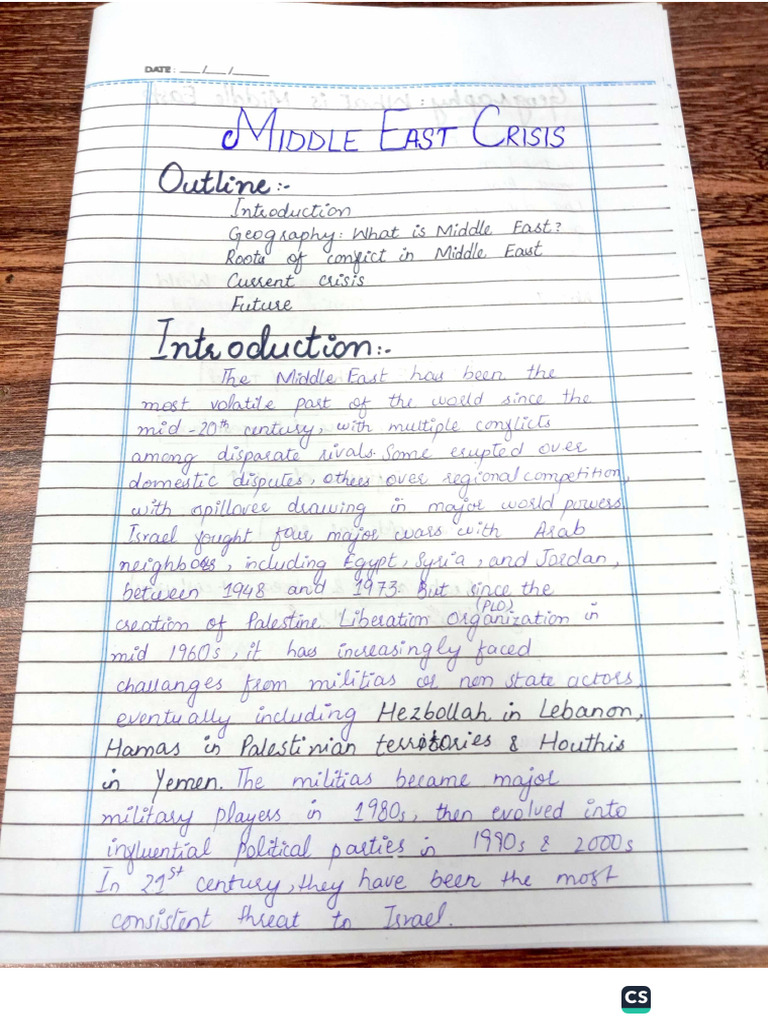 DATE: __/__/____
MIDDLE EAST CRISIS
Outline:-
Introduction
Geography: What is Middle East?
Roots of conflict in Middle East
Current crisis
Future
Introduction:-
The Middle East has been the
most volatile part of the world since the
mid-20th century, with multiple conflicts
among disparate rivals. Some erupted over
domestic disputes, others over regional competition,
with spillover drawing in major world powers
Israel fought four major wars with Arab
neighbors, including Egypt, Syria, and Jordan,
between 1948 and 1973. But since the
(PLO)
creation of Palestine Liberation Organization in
mid 1960s, it has increasingly faced
challanges from militias or non state actors,
eventually including Hezbollah in Lebanon,
Hamas in Palestinian territories & Houthis
in Yemen. The militias became major
military players in 1980s, then evolved into
influential political parties in 1990s & 2000s
In 21st century, they have been the most
consistent threat to Israel.
CS